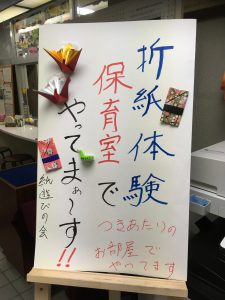 折紙体験
保育室で
やってまぁ〜す!!
つきあたりの
お部屋で
やってます
紙遊びの会